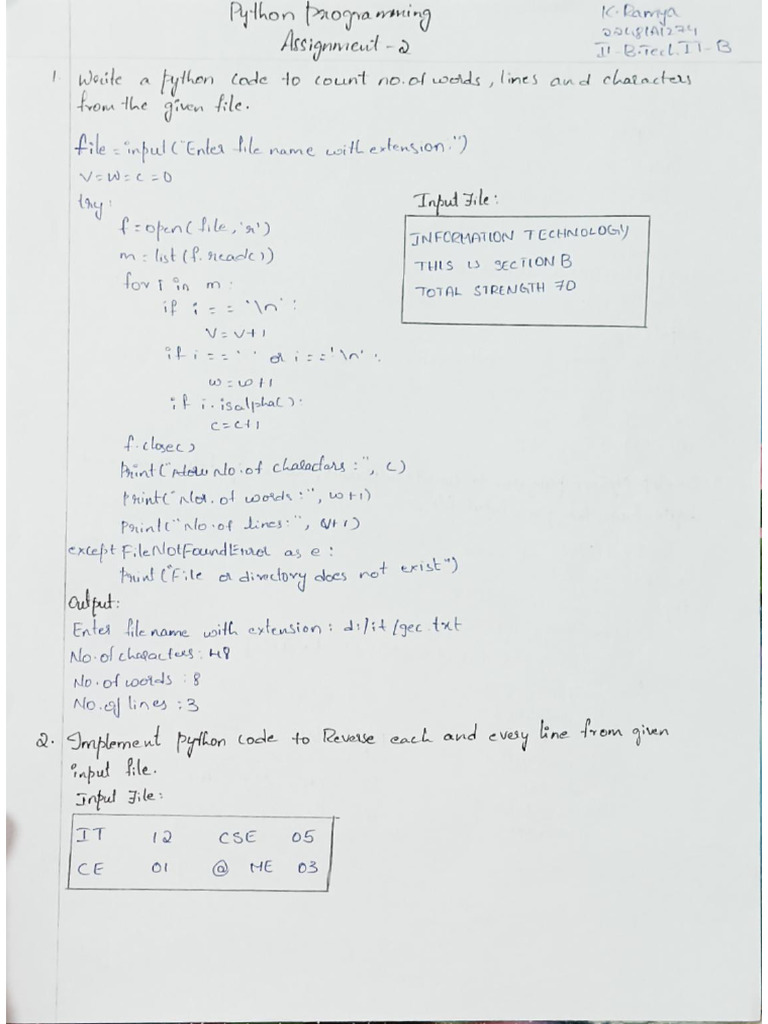 Python Programming
Assignment - 2
K. Ramya
22481A1274
II-B.Tech.IT-B
1. Write a python code to count no. of words, lines and characters
from the given file.
file = input("Enter file name with extension:")
v=w=c=0
try:
f=open(file,'r')
m=list(f.read())
for i in m:
if i == '\n':
v=v+1
if i==' ' or i=='\n':
w=w+1
if i.isalpha():
c=c+1
f.close()
print(" No. of characters:", c)
print("No. of words:", w+1)
print("No. of lines:", v+1)
except FileNotFoundError as e:
print("File or directory does not exist")
Input File:
INFORMATION TECHNOLOGY
THIS IS SECTION B
TOTAL STRENGTH 70
Output:
Enter file name with extension: d:/it/gec.txt
No. of characters: 48
No. of words : 8
No. of lines : 3
2. Implement python code to Reverse each and every line from given
input file.
Input File:
IT 12 CSE 05
CE 01 @ ME 03